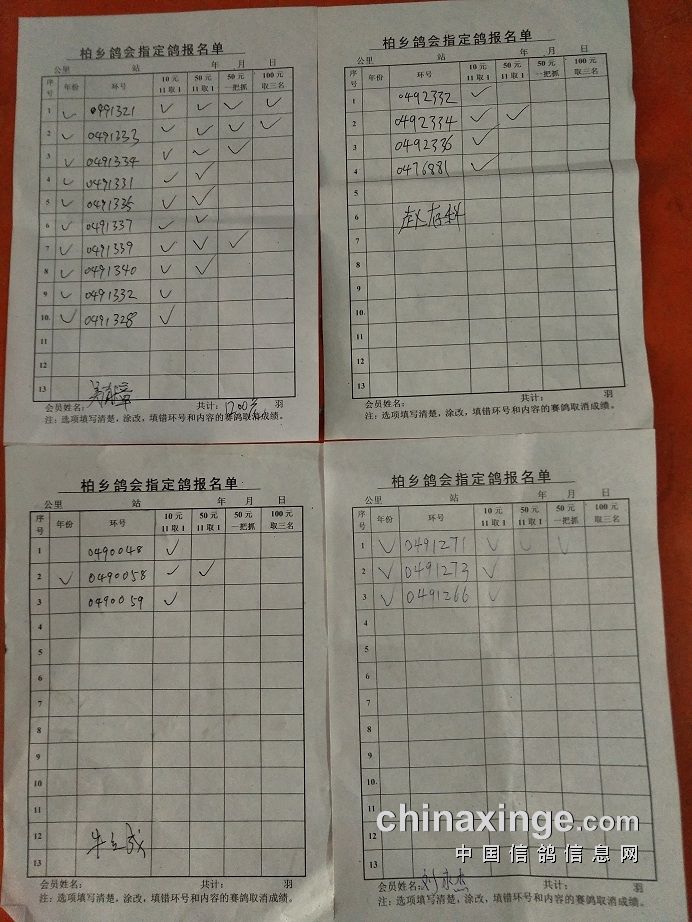 柏乡鸽会指定鸽报名单
公里 站 年 月 日
序号 年份 环号 10元11取1 50元11取1 50元一把抓 100元取三名
1 ✓ 0491321 ✓ ✓ ✓ ✓
2 ✓ 0491333 ✓ ✓ ✓ ✓
3 ✓ 0491334 ✓ ✓ ✓
4 ✓ 0491331 ✓ ✓
5 ✓ 0491335 ✓ ✓
6 ✓ 0491337 ✓ ✓
7 ✓ 0491339 ✓ ✓ ✓
8 ✓ 0491340 ✓ ✓
9 ✓ 0491332 ✓
10. ✓ 0491328 ✓
11
12
13
会员姓名: 共计: 羽
注:选项填写清楚,涂改,填错环号和内容的赛鸽取消成绩。
柏乡鸽会指定鸽报名单
公里 站 年 月 日
序号 年份 环号 10元11取1 50元11取1 50元一把抓 100元取三名
1 0492332 ✓
2 0492334 ✓ ✓
3 0492336 ✓
4 0476881 ✓
5
6 赵存科
7
8
9
10.
11
12
13
会员姓名: 共计: 羽
注:选项填写清楚,涂改,填错环号和内容的赛鸽取消成绩。
柏乡鸽会指定鸽报名单
公里 站 年 月 日
序号 年份 环号 10元11取1 50元11取1 50元一把抓 100元取三名
1 0490048 ✓
2 ✓ 0490058 ✓ ✓
3 0490059 ✓
4
5
6
7
8
9
10.
11
12 牛立成
13
会员姓名: 共计: 羽
注:选项填写清楚,涂改,填错环号和内容的赛鸽取消成绩。
柏乡鸽会指定鸽报名单
公里 站 年 月 日
序号 年份 环号 10元11取1 50元11取1 50元一把抓 100元取三名
1 ✓ 0491271 ✓ ✓ ✓
2 ✓ 0491273 ✓
3 ✓ 0491266 ✓
4
5
6
7
8
9
10.
11
12
13
会员姓名: 刘永杰 共计: 羽
注:选项填写清楚,涂改,填错环号和内容的赛鸽取消成绩。
chinaxinge.com
中国信鸽信息网